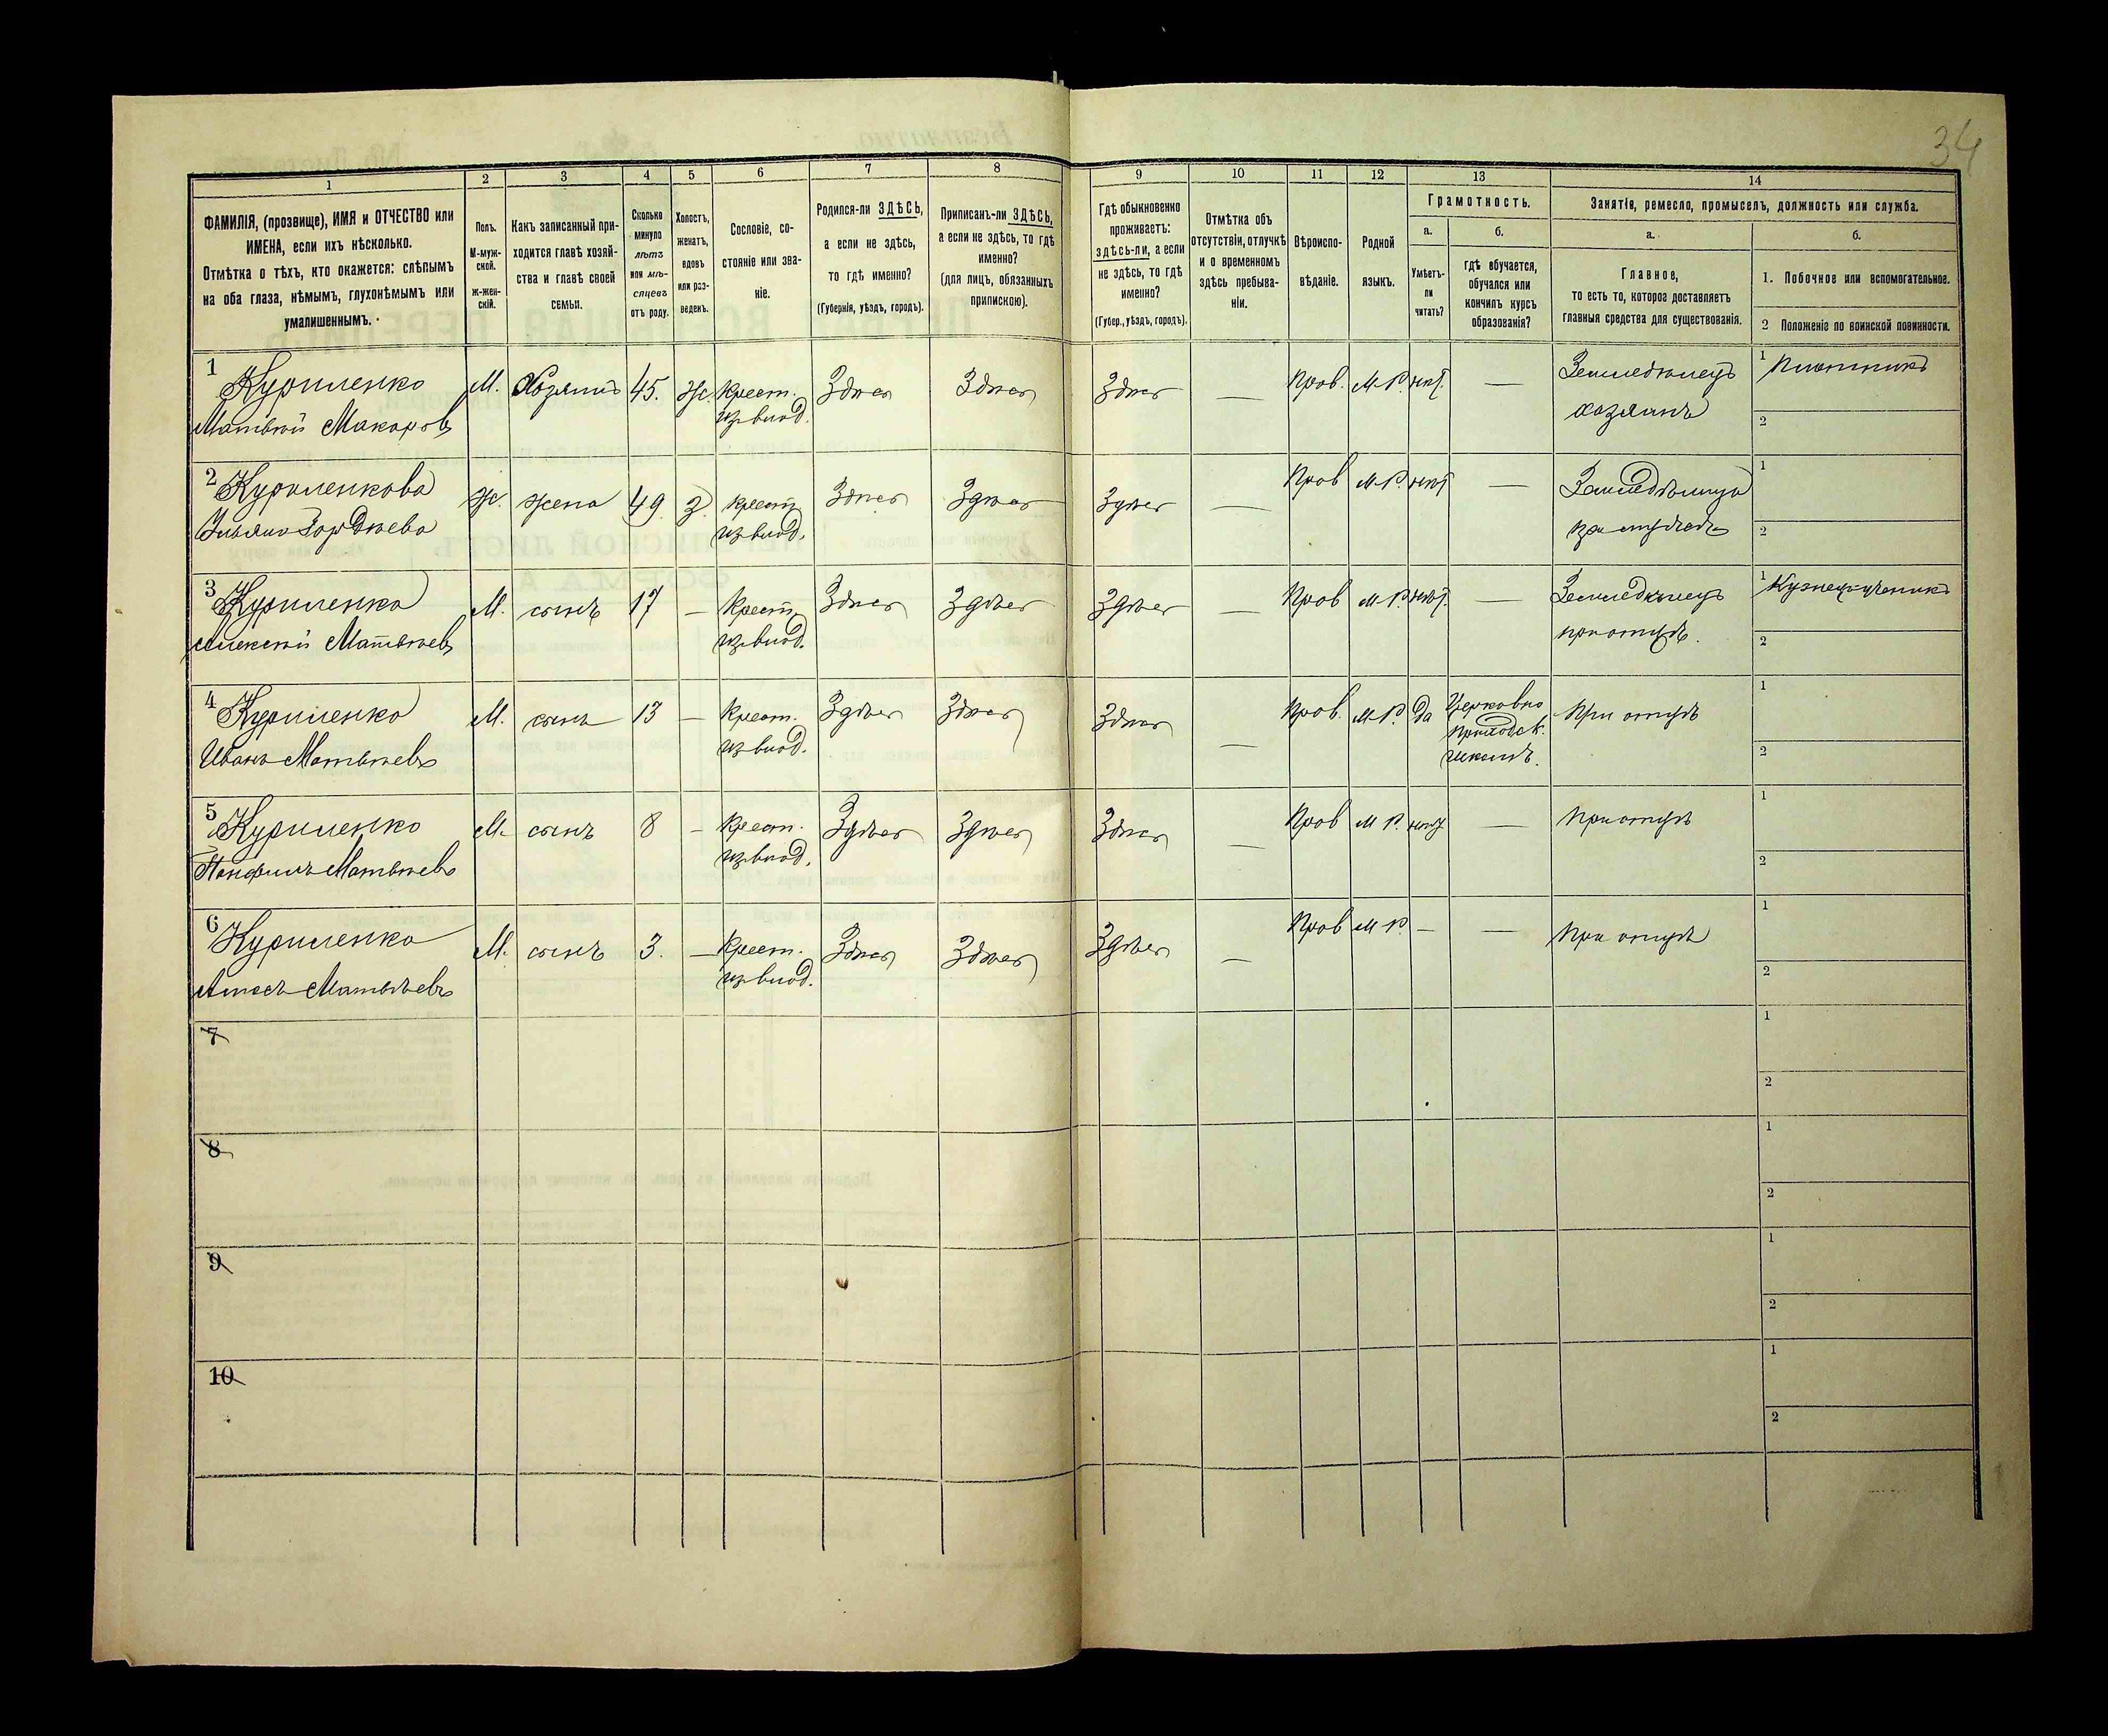 34
1 2 3 4 5 6 7 8 9 10 11 12 13 14
ФАМИЛІЯ, (прозвище), ИМЯ и ОТЧЕСТВО или
ИМЕНА, если ихъ нѣсколько.
Отмѣтка о тѣхъ, кто окажется: слѣпымъ
на оба глаза, нѣмымъ, глухонѣмымъ или
умалишеннымъ.
Полъ.
М-муж-
ской.
Ж-жен-
скій.
Какъ записанный при-
ходится главѣ хозяй-
ства и главѣ своей
семьи.
Сколько
минуло
лѣтъ
или мѣ-
сяцевъ
отъ роду.
Холостъ,
женатъ,
вдовъ
или раз-
веденъ.
Сословіе, со-
стояніе или зва-
ніе.
Родился-ли ЗДѢСЬ,
а если не здѣсь,
то гдѣ именно?
(Губернія, уѣздъ, городъ).
Приписанъ-ли ЗДѢСЬ,
а если не здѣсь, то гдѣ
именно?
(для лицъ, обязанныхъ
припискою).
Гдѣ обыкновенно
проживаетъ:
здѣсь-ли, а если
не здѣсь, то гдѣ
именно?
(Губер., уѣздъ, городъ).
Отмѣтка объ
отсутствіи, отлучкѣ
и о временномъ
здѣсь пребыва-
ніи.
Вѣроиспо-
вѣданіе.
Родной
языкъ.
Грамотность.
а.
Умѣетъ-
ли
читать?
б.
гдѣ обучается,
обучался или
кончилъ курсъ
образованія?
Занятіе, ремесло, промыселъ, должность или служба.
а.
Главное,
то есть то, которое доставляетъ
главныя средства для существованія.
б.
1. Побочное или вспомогательное.
2 Положеніе по воинской повинности.
1 Куриленко М. Хозяинъ 45. Ж. Крест. Здѣсь Здѣсь Здѣсь — Прав. М.Р. нѣт. — Земледѣлецъ 1 Плотникъ
Матвѣй Макаровъ из влад. хозяинъ 2
2 Куриленкова Ж. жена 49 З. Крест. Здѣсь Здѣсь Здѣсь — Прав М.Р. нѣт — Земледѣлица 1
Гордѣева из влад. 2
3 Куриленко М. сынъ 17 — Крест. Здѣсь Здѣсь Здѣсь — Прав М.Р. нѣт. — Земледѣлецъ 1 Кузнец-ученикъ
Алексѣй Матвѣевъ из влад. при отцѣ. 2
4 Куриленко М. сынъ 13 — Крест. Здѣсь Здѣсь Здѣсь — Прав. М.Р. да Церковно При отцѣ 1
Иванъ Матвѣевъ из влад. приходск. 2
школѣ.
5 Куриленко М. сынъ 8 — Крест. Здѣсь Здѣсь Здѣсь — Прав М.Р. нѣт — При отцѣ 1
Панфилъ Матвѣевъ из влад. 2
6 Куриленко М. сынъ 3. — Крест. Здѣсь Здѣсь Здѣсь — Прав М Р — — При отцѣ 1
Матвѣевъ из влад. 2
7 1
2
8 1
2
9 1
2
10 1
2